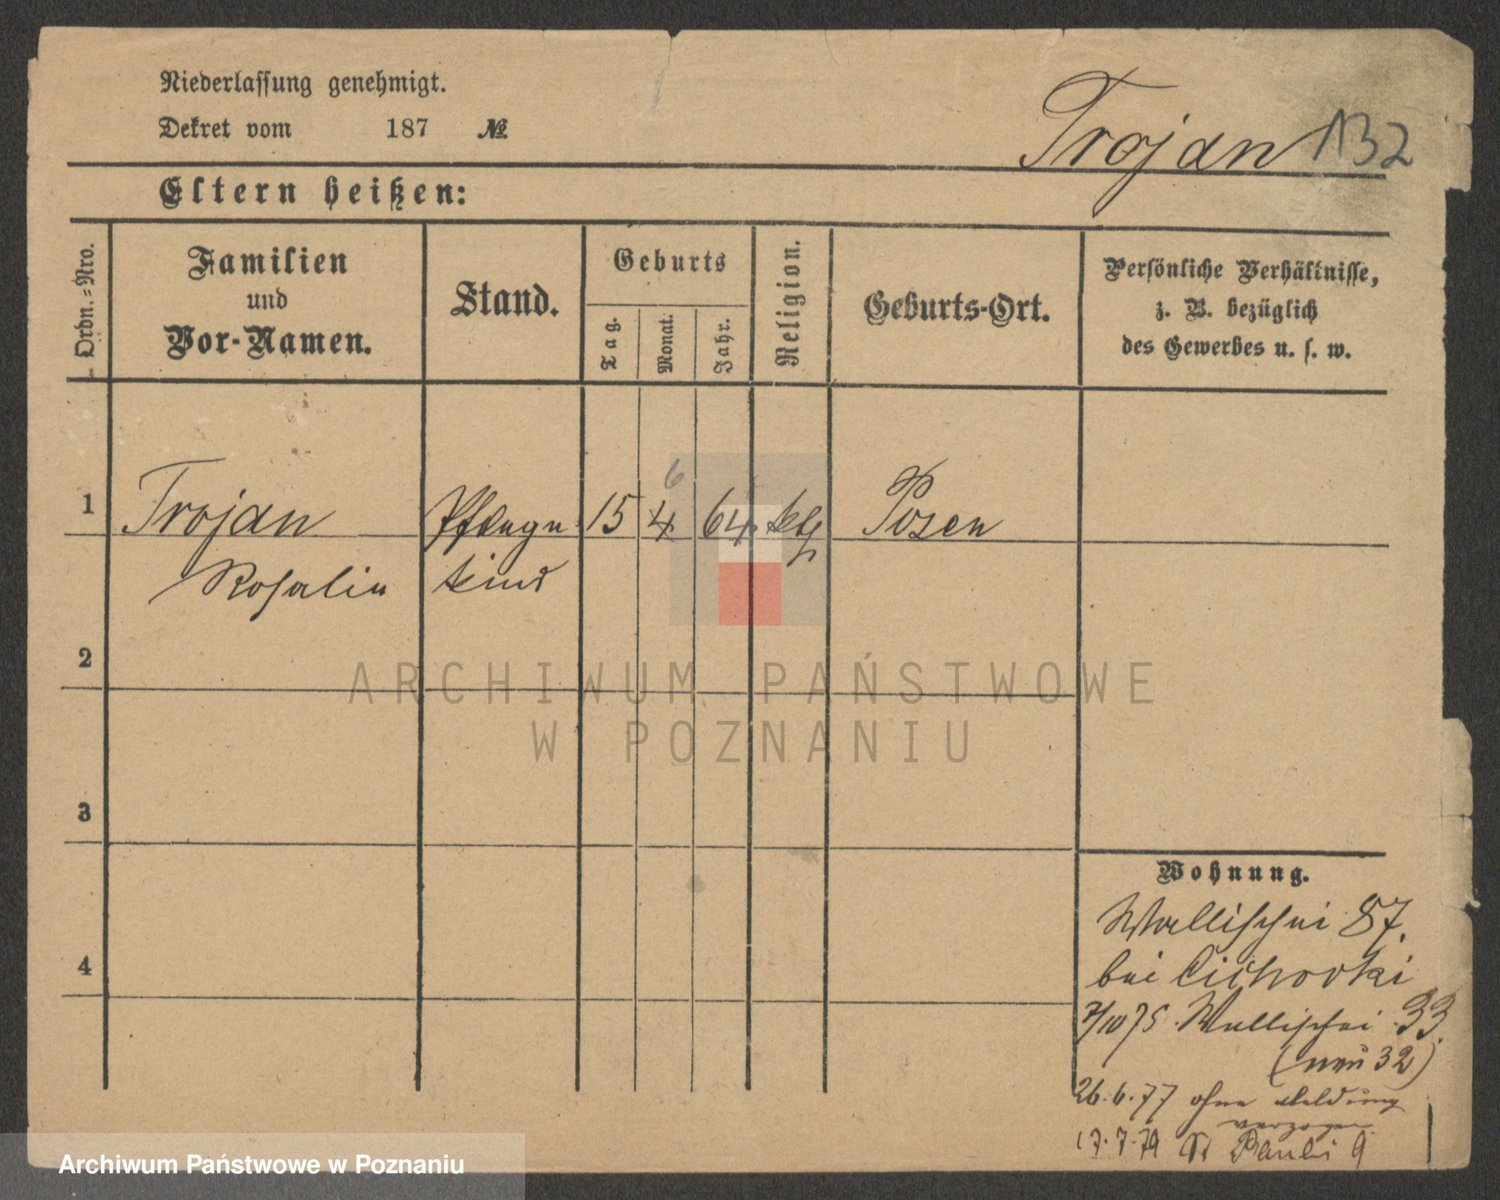 Niederlassung genehmigt.
Dekret vom 187 №
Trojan 132
Eltern heißen:
Ordn.=Nro.
Familien
und
Vor-Namen.
Stand.
Geburts
Tag.
Monat.
Jahr.
Religion.
Geburts-Ort.
Persönliche Verhältnisse,
z. B. bezüglich
des Gewerbes u. s. w.
6
1 Trojan Pflege 15 4 64 kth Posen
Rosalie kind
2
ARCHIWUM PAŃSTWOWE
W POZNANIU
3
Wohnung.
Wallischei 87.
bei Cichovski
4
7/10 75. Wallischei 33
(neu 32)
26.6.77 ohne Meldung
verzogen
17.7.79 St Pauli 9
Archiwum Państwowe w Poznaniu